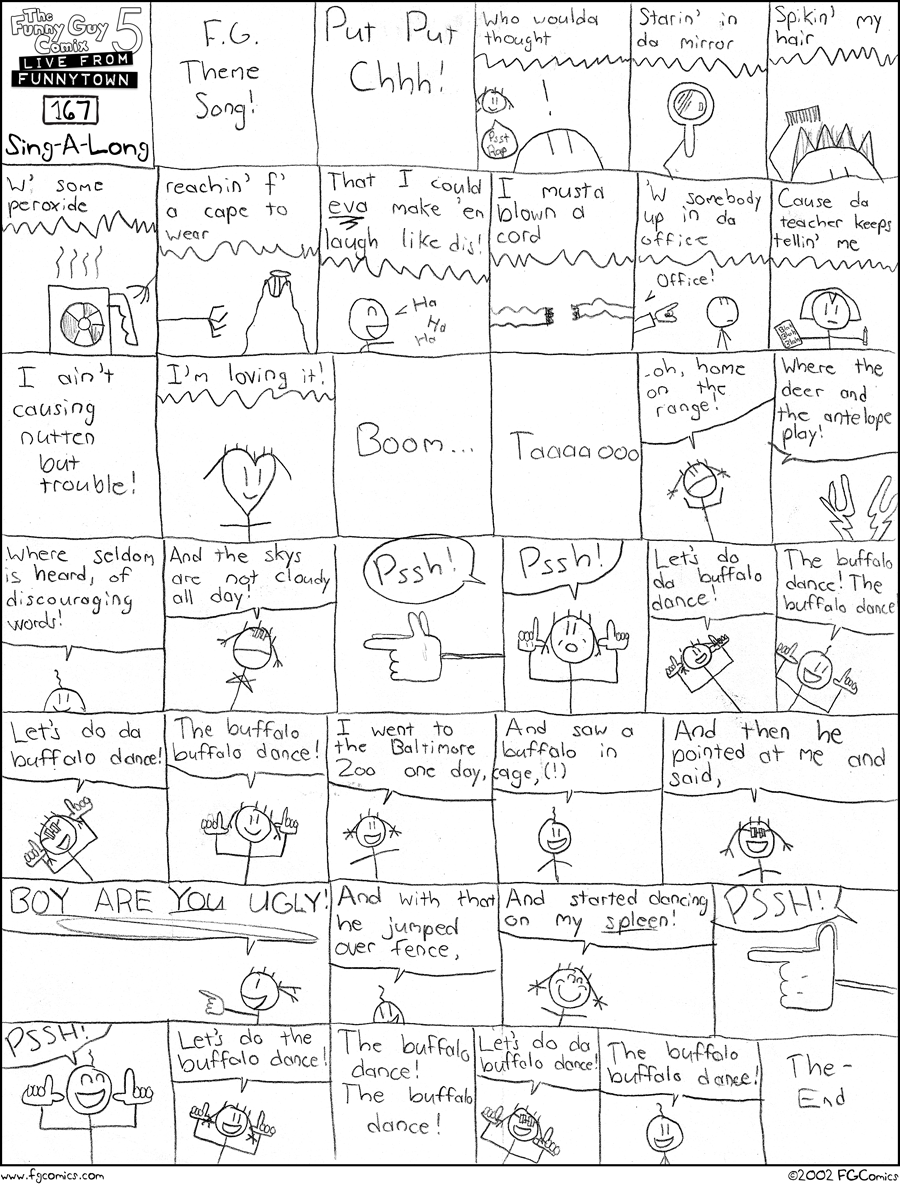 The
Funny Guy
Comix 5
LIVE FROM
FUNNYTOWN
167
Sing-A-Long
F.G.
Theme
Song!
Put Put
Chhh!
Who woulda
thought
!
Psst
Psst
Starin' in
da mirror
Spikin' my
hair
W' some
peroxide
reachin' f'
a cape to
wear
That I could
eva make 'em
laugh like dis!
Ha
Ha
Ha
I musta
blown a
cord
'W somebody
up in da
office
Office!
Cause da
teacher keeps
tellin' me
Blah
Blah
Blah
I ain't
causing
nutten
but
trouble!
I'm loving it!
Boom...
Taaaaooo
-oh, home
on the
range!
Where the
deer and
the antelope
play!
Where seldom
is heard, of
discouraging
words!
And the skys
are not cloudy
all day!
Pssh!
Pssh!
Let's do
da buffalo
dance!
The buffalo
dance! The
buffalo dance
Let's do da
buffalo dance!
The buffalo
buffalo dance!
I went to
the Baltimore
Zoo one day,
And saw a
buffalo in
cage, (!)
And then he
pointed at me and
said,
BOY ARE YOU UGLY!
And with that
he jumped
over fence,
And started dancing
on my spleen!
PSSH!
PSSH!
Let's do the
buffalo dance!
The buffalo
dance!
The buffalo
dance!
Let's do da
buffalo dance!
The buffalo
buffalo dance!
The-
End
www.fgcomics.com
©2002 FGComics